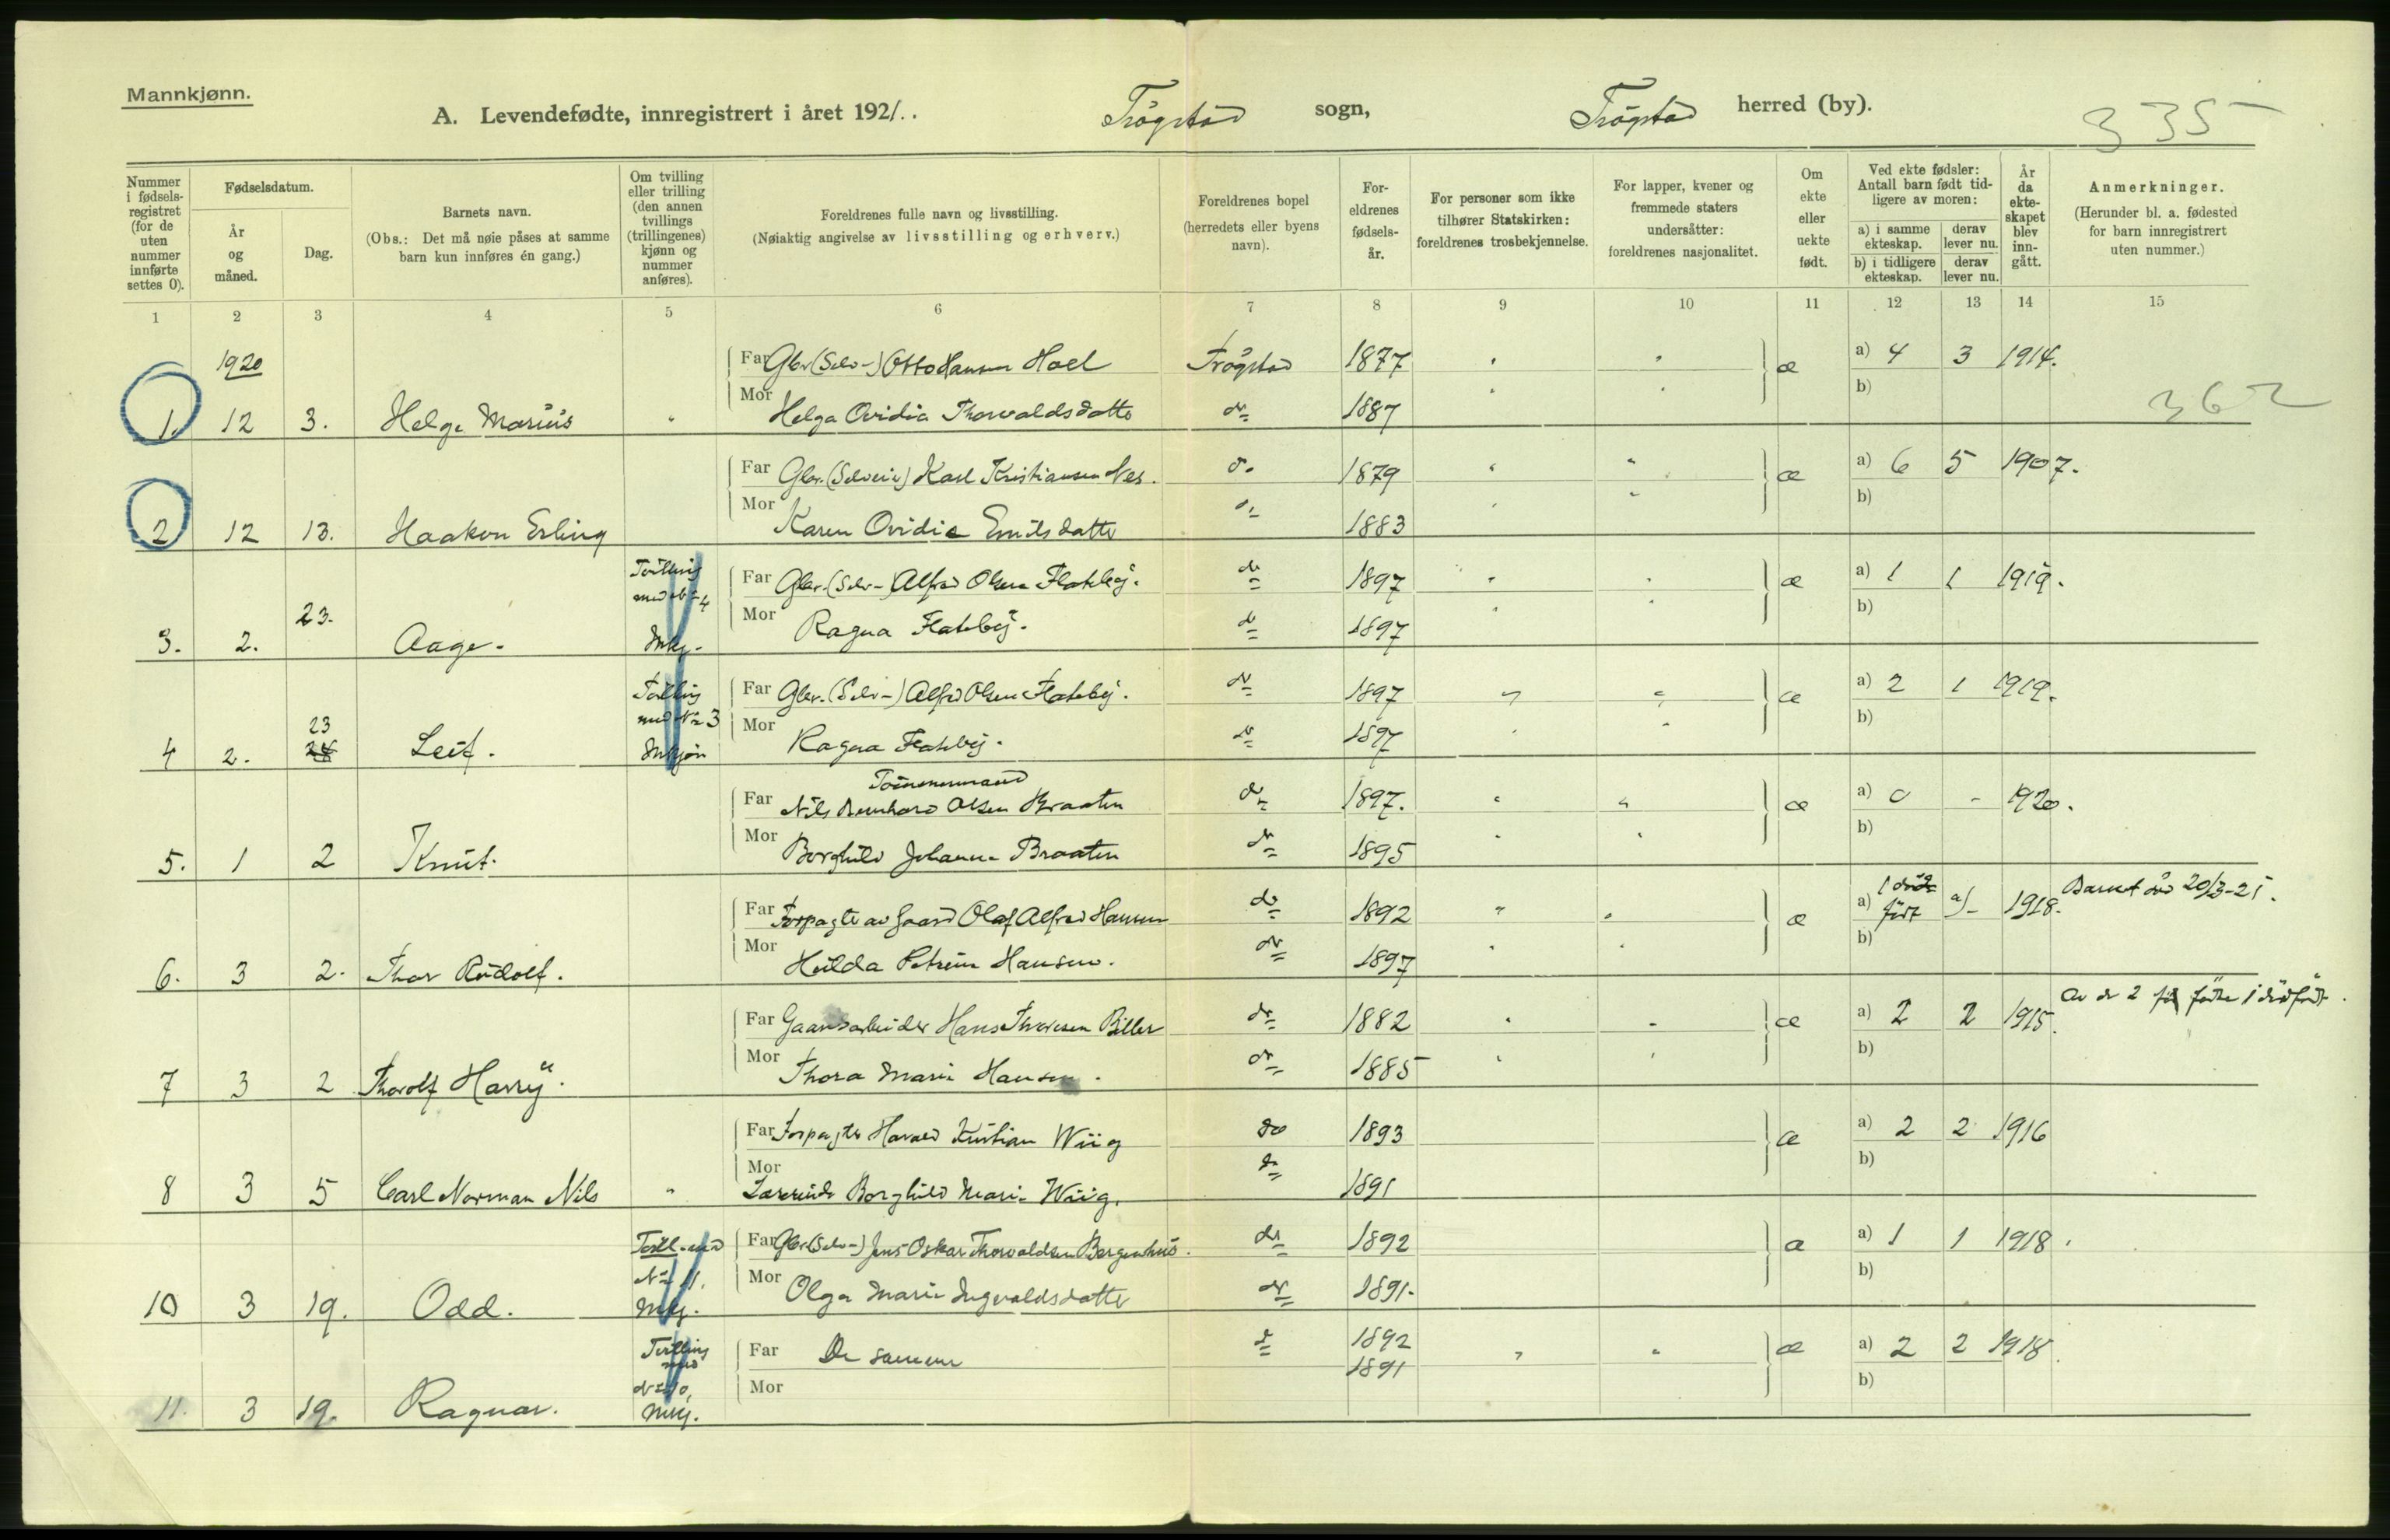 Mannkjønn.
A. Levendefødte, innregistrert i året 1921. . Trøgstad sogn, Trøgstad herred (by). 335
Nummer i fødsels-registret (for de uten nummer innførte settes 0).
Fødselsdatum.
År og måned.
Dag.
Barnets navn.
(Obs.: Det må nøie påses at samme barn kun innføres én gang.)
Om tvilling eller trilling (den annen tvillings (trillingenes) kjønn og nummer anføres).
Foreldrenes fulle navn og livsstilling.
(Nøiaktig angivelse av livsstilling og erhverv.)
Foreldrenes bopel (herredets eller byens navn).
For-eldrenes fødsels-år.
For personer som ikke tilhører Statskirken: foreldrenes trosbekjennelse.
For lapper, kvener og fremmede staters undersåtter: foreldrenes nasjonalitet.
Om ekte eller uekte født.
Ved ekte fødsler: Antall barn født tid-ligere av moren:
a) i samme ekteskap. derav lever nu.
b) i tidligere ekteskap. derav lever nu.
År da ekte-skapet blev inn-gått.
Anmerkninger.
(Herunder bl. a. fødested for barn innregistrert uten nummer.)
1 2 3 4 5 6 7 8 9 10 11 12 13 14 15
1920
Far Gbr (Selv-) Otto Hansen Hoel Trøgstad 1877 " " æ a) 4 3 1914.
1. 12 3. Helge Marius " Mor Helga Ovidia Thorvaldsdatter do 1887 " " b) 362
Far Gbr. (Selveier) Karl Kristiansen Nes. do 1879 " " æ a) 6 5 1907.
2 12 13. Haakon Erling Mor Karen Ovidia Emilsdatter do 1883 b)
Tvilling med No 4 Far Gbr. (Selv-) Alfred Olsen Flateby. do 1897 " " æ a) 1 1 1919.
3. 2. 23. Aage. Mkj. Mor Ragna Flateby. do 1897 b)
Tvilling med No 3 Far Gbr. (Selv-) Alfred Olsen Flateby. do 1897 " " æ a) 2 1 1919.
4 2. 23 Leif. Mkjøn Mor Ragna Flateby. do 1897 b)
Tømmermand
Far Nils Bernhard Olsen Braaten do 1897. " " æ a) 0 - 1920.
5. 1 2 Knut. Mor Borghild Johanne Braaten do 1895 b)
Far Forpagter av Gaard Olaf Alfred Hansen do 1892 " " æ a) 1 død født a) - 1918. Barnet død 20/3-21.
6. 3 2. Thor Rudolf. Mor Hulda Petrine Hansen. do 1897 b)
Far Gaardsarbeider Hans Thoresen Biller do 1882 " " æ a) 2 2 1915. Av de 2 før fødte 1 dødfødt.
7 3 2 Thorolf Harry. Mor Thora Marie Hansen. do 1885 b)
Far Forpagter Harald Kristian Wiig do 1893 æ a) 2 2 1916
8 3 5 Carl Norman Nils " Mor Lærerinde Borghild Marie Wiig. do 1891 b)
Tvill. med No 11. Far Gbr (Selv-) Jens Oskar Thorvaldsen Bergenhus. do 1892 æ a) 1 1 1918.
10 3 19. Odd. Mkj. Mor Olga Marie Ingvaldsdatter do 1891. b)
Tvilling med No 10, Far De samme do 1892 1891 " " æ a) 2 2 1918.
11. 3 19. Ragnar. Mkj. Mor b)